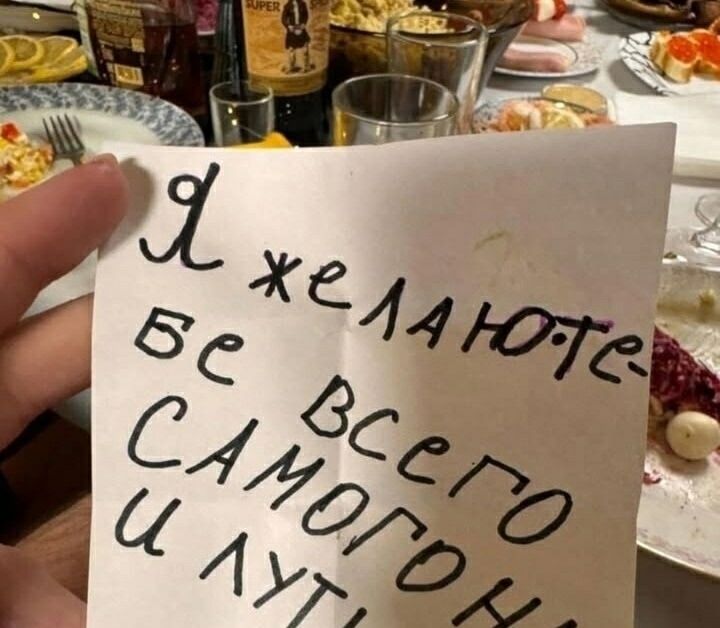 SUPER
Я желаю·те-
бе всего
САМОГОН
И ЛУТ